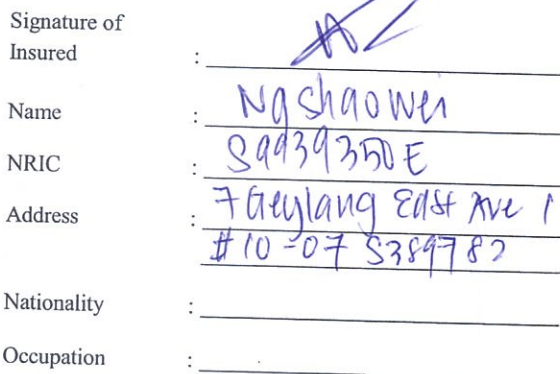 Signature of
Insured :
Name : Ng Shao Wei
NRIC : S9939350E
Address : 7 Geylang East Ave 1
#10-07 S389782
Nationality :
Occupation :